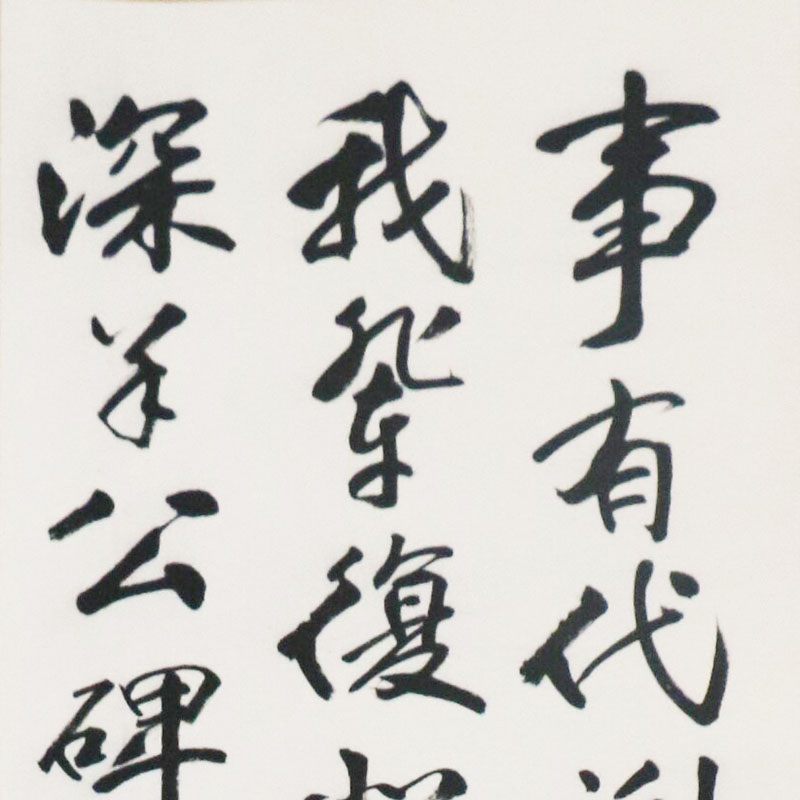 事有代謝
我輩復登
深羊公碑